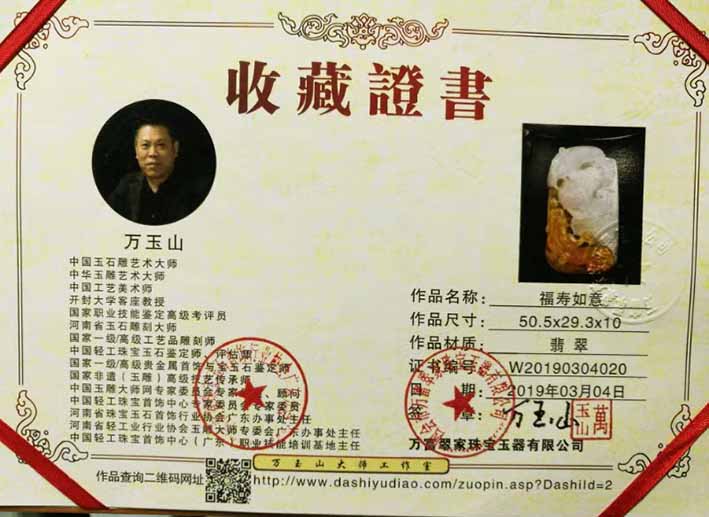 收藏證書
万玉山
中国玉石雕艺术大师
中华玉雕艺术大师
中国工艺美术师
开封大学客座教授
国家职业技能鉴定高级考评员
河南省玉石雕刻大师
国家一级/高级工艺品雕刻师
中国轻工珠宝玉石鉴定师、评估师
国家一级/高级贵金属首饰与宝玉石鉴定师
国家非遗（玉雕）高级技艺传承师
中国玉雕大师网专家委员会专家 顾问
中国轻工珠宝首饰中心专家委员会专家委员
河南省珠宝玉石首饰行业协会广东办事处主任
河南省轻工业行业协会玉雕大师专委会广东办事处主任
中国轻工珠宝首饰中心（广东）职业技能培训基地主任
作品名称: 福寿如意
作品尺寸: 50.5x29.3x10
作品材质: 翡翠
证书编号: W20190304020
日 期: 2019年03月04日
签 章: 万玉山
萬玉山
万富翠家珠宝玉器有限公司
作品查询二维码网址
万玉山大师工作室
http://www.dashiyudiao.com/zuopin.asp?DashiId=2